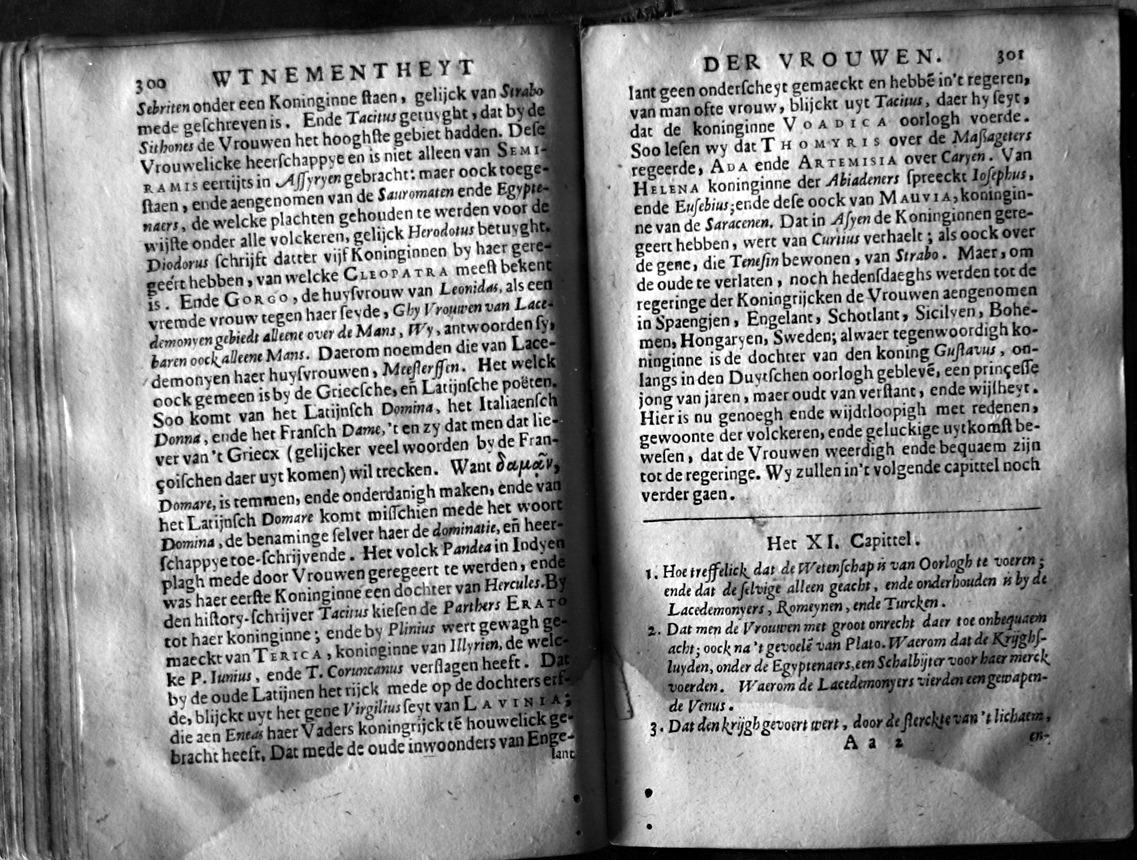 300 WTNEMENTHEYT
Sebriten onder een Koninginne ſtaen, gelijck van Strabo
mede geſchreven is. Ende Tacitus getuyght, dat by de
Sithones de Vrouwen het hooghſte gebiet hadden. Deſe
Vrouwelicke heerſchappye en is niet alleen van SEMI-
RAMIS eertijts in Aſſyryen gebracht: maer oock toege-
ſtaen, ende aengenomen van de Sauromaten ende Egypte-
naers, de welcke plachten gehouden te werden voor de
wijſte onder alle volckeren, gelijck Herodotus betuyght.
Diodorus ſchrijft datter vijf Koninginnen by haer gere-
geert hebben, van welcke CLEOPATRA meeſt bekent
is. Ende GORGO, de huyſvrouw van Leonidas, als een
vremde vrouw tegen haer ſeyde, Ghy Vrouwen van Lace-
demonyen gebiedt alleene over de Mans, Wy, antwoorden ſy,
baren oock alleene Mans. Daerom noemden die van Lace-
demonyen haer huyſvrouwen, Meeſterſſen. Het welck
oock gemeen is by de Griecſche, en̄ Latijnſche poëten.
Soo komt van het Latijnſch Domina, het Italiaenſch
Donna, ende het Franſch Dame, 't en zy dat men dat lie-
ver van 't Griecx (gelijcker veel woorden by de Fran-
çoiſchen daer uyt komen) wil trecken. Want δαμᾶν,
Domare, is temmen, ende onderdanigh maken, ende van
het Latijnſch Domare komt miſſchien mede het woort
Domina, de benaminge ſelver haer de dominatie, en̄ heer-
ſchappye toe-ſchrijvende. Het volck Pandea in Indyen
plagh mede door Vrouwen geregeert te werden, ende
was haer eerſte Koninginne een dochter van Hercules. By
den hiſtory-ſchrijver Tacitus kieſen de Parthers ERATO
tot haer koninginne; ende by Plinius wert gewagh ge-
maeckt van TERICA, koninginne van Illyrien, de welc-
ke P. Iunius, ende T. Coruncanus verſlagen heeft. Dat
by de oude Latijnen het rijck mede op de dochters erf-
de, blijckt uyt het gene Virgilius ſeyt van LAVINIA;
die aen Eneas haer Vaders koningrijck tē houwelick ge-
bracht heeft. Dat mede de oude inwoonders van Enge-
lant
DER VROUWEN. 301
lant geen onderſcheyt gemaeckt en hebbē in't regeren,
van man ofte vrouw, blijckt uyt Tacitus, daer hy ſeyt,
dat de koninginne VOADICA oorlogh voerde.
Soo leſen wy dat THOMYRIS over de Maſſageters
regeerde, ADA ende ARTEMISIA over Caryen. Van
HELENA koninginne der Abiadeners ſpreeckt Ioſephus,
ende Euſebius; ende deſe oock van MAUVIA, koningin-
ne van de Saracenen. Dat in Aſyen de Koninginnen gere-
geert hebben, wert van Curtius verhaelt; als oock over
de gene, die Teneſin bewonen, van Strabo. Maer, om
de oude te verlaten, noch hedenſdaeghs werden tot de
regeringe der Koningrijcken de Vrouwen aengenomen
in Spaengjen, Engelant, Schotlant, Sicilyen, Bohe-
men, Hongaryen, Sweden; alwaer tegenwoordigh ko-
ninginne is de dochter van den koning Guſtavus, on-
langs in den Duytſchen oorlogh geblevē, een princeſſe
jong van jaren, maer oudt van verſtant, ende wijſheyt.
Hier is nu genoegh ende wijdtloopigh met redenen,
gewoonte der volckeren, ende geluckige uytkomſt be-
weſen, dat de Vrouwen weerdigh ende bequaem zijn
tot de regeringe. Wy zullen in't volgende capittel noch
verder gaen.
Het XI. Capittel.
1. Hoe treffelick dat de Wetenſchap is van Oorlogh te voeren;
ende dat de ſelvige alleen geacht, ende onderhouden is by de
Lacedemonyers, Romeynen, ende Turcken.
2. Dat men de Vrouwen met groot onrecht daer toe onbequaem
acht; oock na 't gevoelē van Plato. Waerom dat de Krijghſ-
luyden, onder de Egyptenaers, een Schalbijter voor haer merck
voerden. Waerom de Lacedemonyers vierden een gewapen-
de Venus.
3. Dat den krijgh gevoert wert, door de ſterckte van 't lichaem,
Aa 2 en-